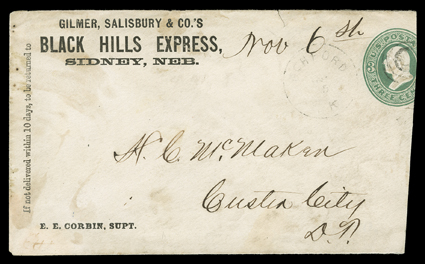 GILMER, SALISBURY & CO.'S
BLACK HILLS EXPRESS,
SIDNEY, NEB.
Nov 6th
U.S. POSTAGE
THREE CENTS
If not delivered within 10 days, to be returned to
H. C. McMaken
Custer City
D.T.
E. E. CORBIN, SUPT.